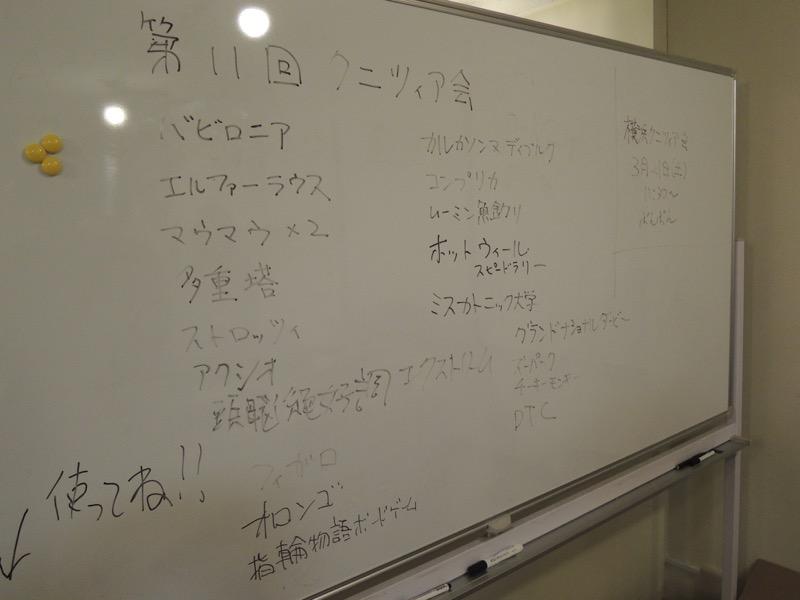 第11回 クニツィア会
バビロニア
エルファーラウス
マウマウ×2
多重塔
ストロッツィ
アクシオ
頭脳絶好調 エクストリム
フィガロ
オロンゴ
指輪物語ボードゲーム
使ってね!!
カルカソンヌ・ディブルク
コンプリカ
ムーミン魚釣り
ホットウィール
スピードラリー
ミスカトニック大学
グランドナショナルダービー
ズーパーク
チーキーモンキー
DTC
横浜クニツィア会
3月21日(土)
11:30〜